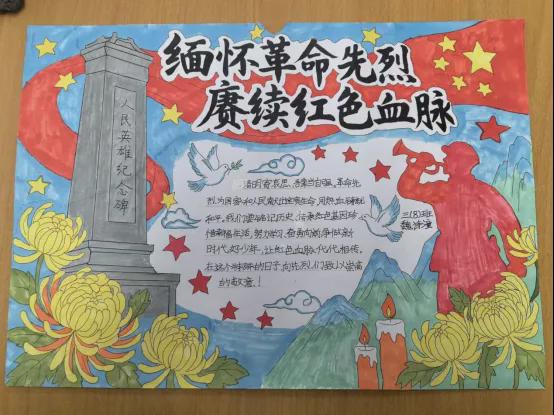 缅怀革命先烈
赓续红色血脉
人民英雄纪念碑
清明寄哀思,吾辈当自强,革命先
烈为国家和人民献出宝贵生命,用热血铸就
和平,我们要铭记历史,传承红色基因,珍
惜幸福生活,努力学习,奋勇向前,争做新
时代好少年,让红色血脉代代相传,
在这个特殊的日子,向先烈们致以崇高
的敬意!
三(8)班